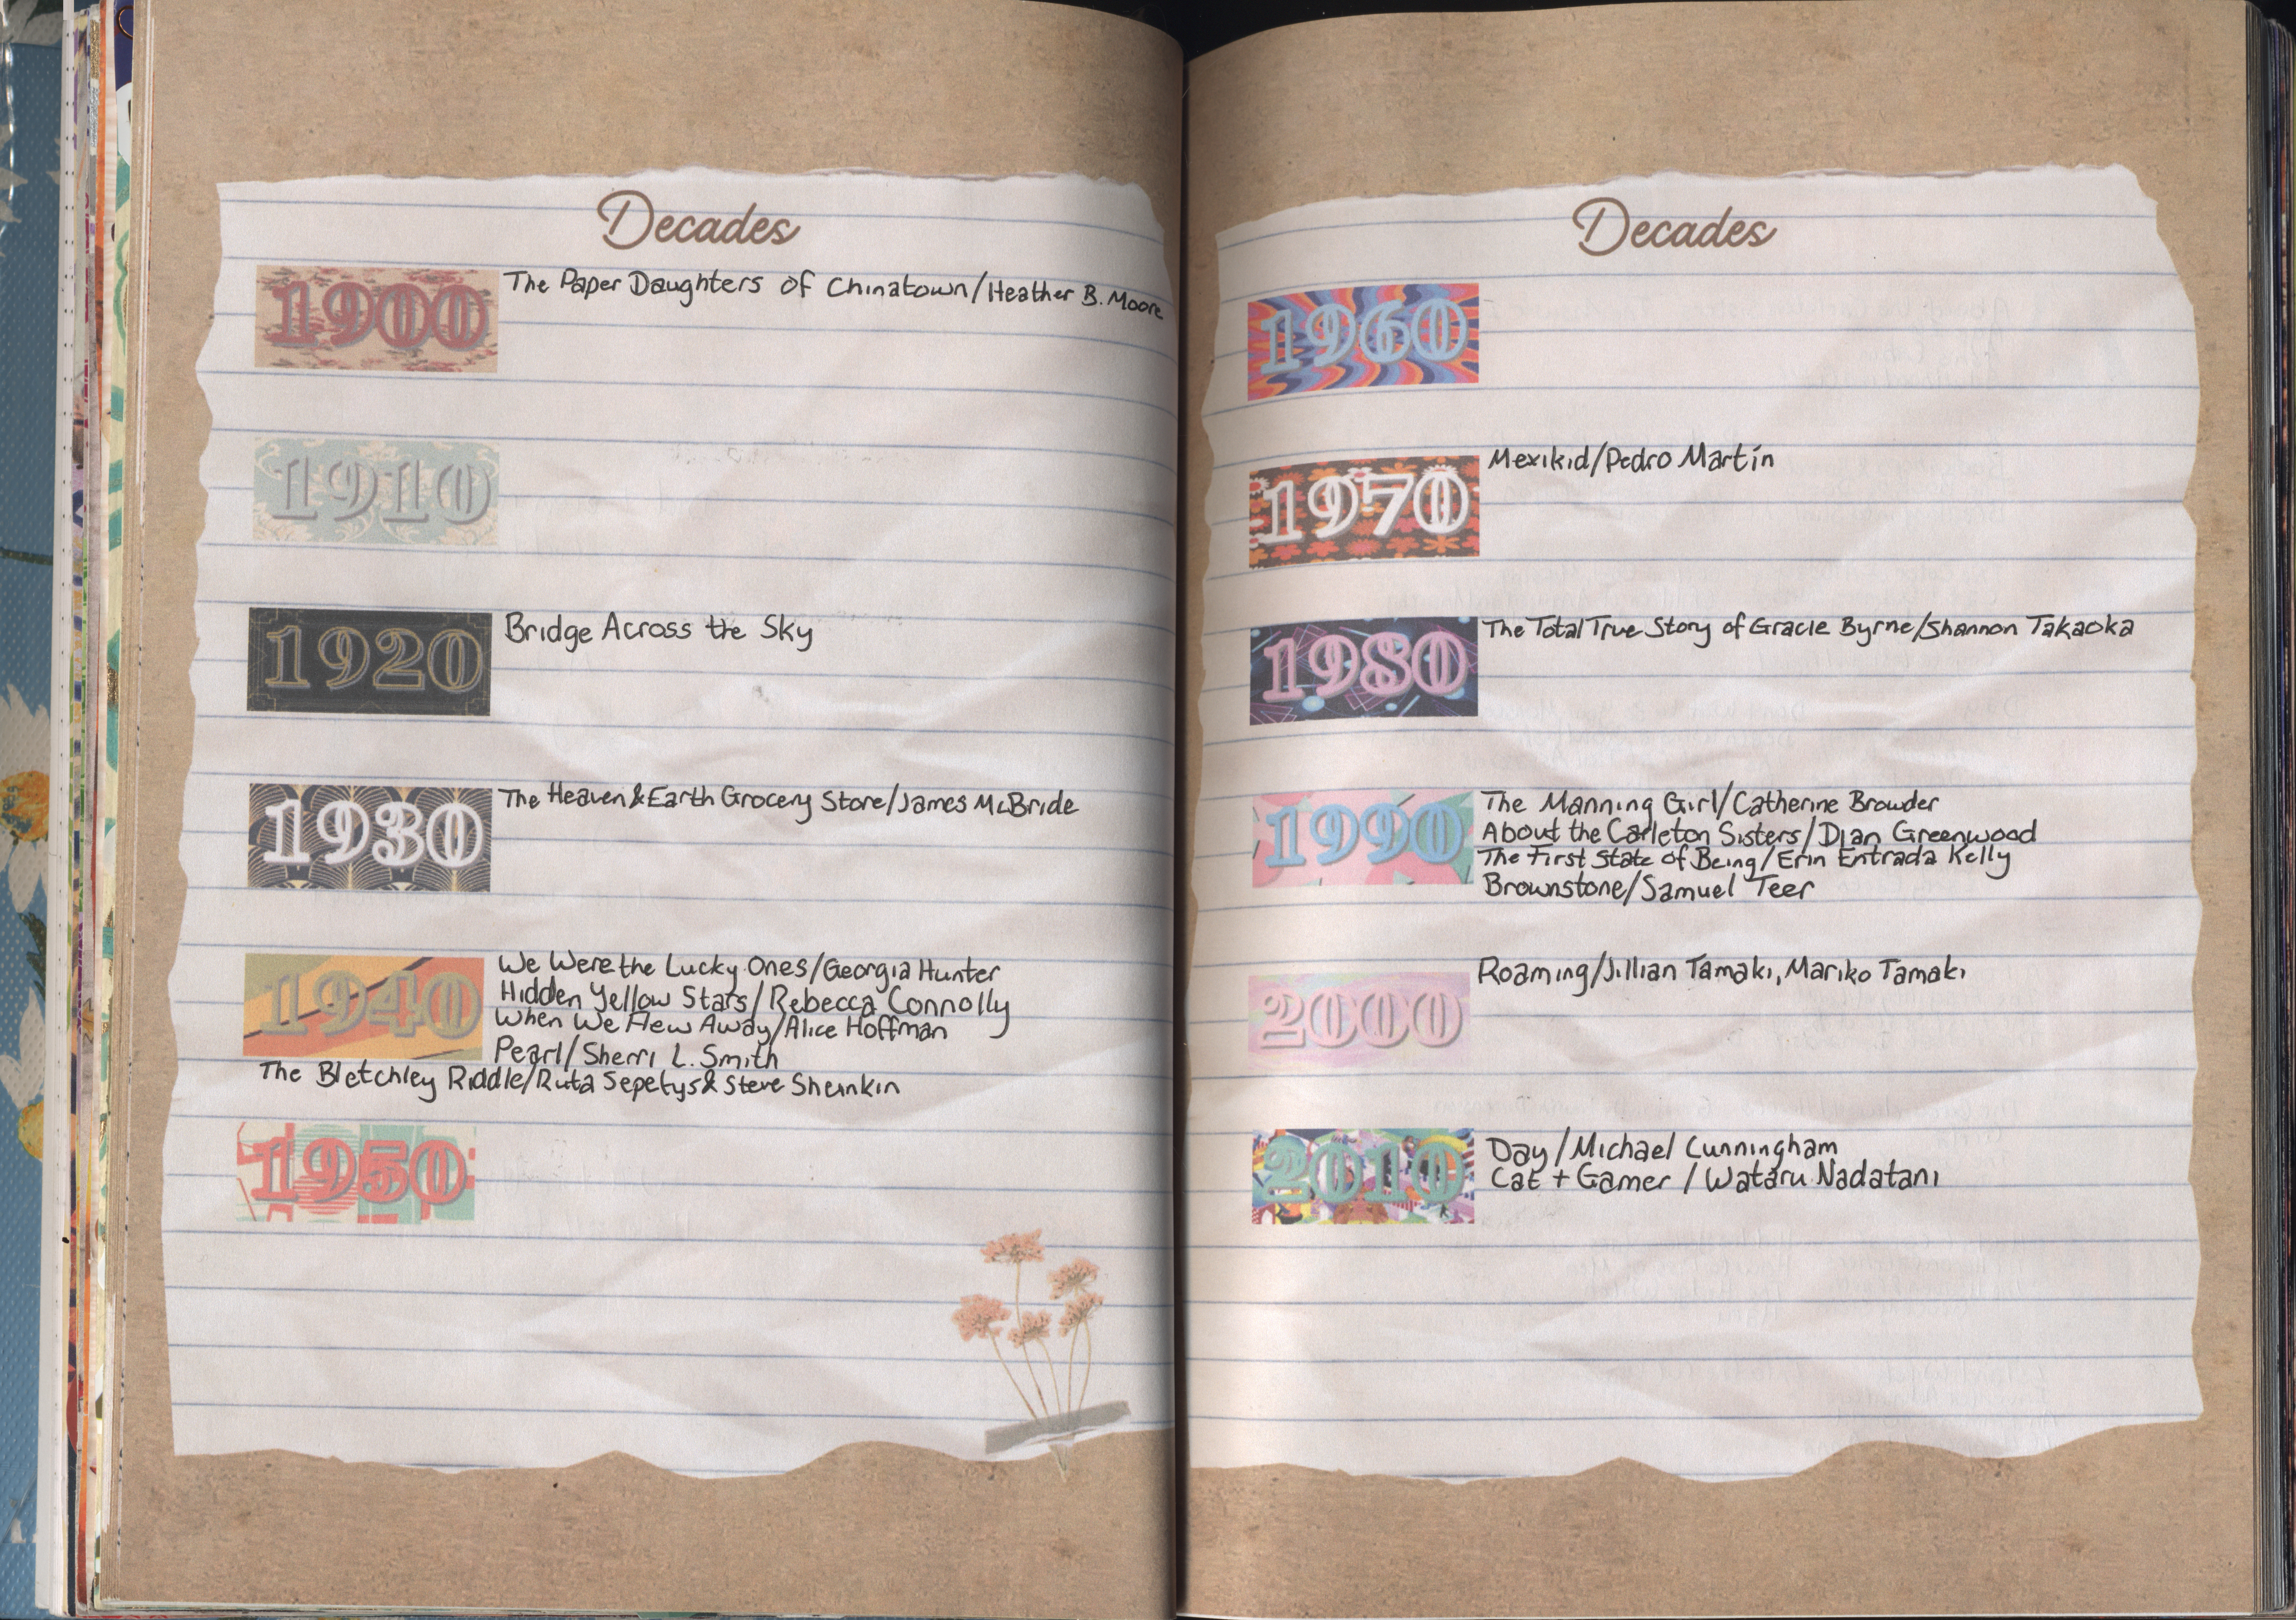 Decades
1900
The Paper Daughters of Chinatown/Heather B. Moore
1910
1920
Bridge Across the Sky
1930
The Heaven & Earth Grocery Store/James McBride
1940
We Were the Lucky Ones/Georgia Hunter
Hidden Yellow Stars/Rebecca Connolly
When We Flew Away/Alice Hoffman
Pearl/Sherri L. Smith
The Bletchley Riddle/Ruta Sepetys & Steve Sheinkin
1950
Decades
1960
1970
Mexikid/Pedro Martín
1980
The Total True Story of Gracie Byrne/Shannon Takaoka
1990
The Manning Girl/Catherine Browder
About the Carleton Sisters/Dian Greenwood
The First State of Being/Erin Entrada Kelly
Brownstone/Samuel Teer
2000
Roaming/Jillian Tamaki, Mariko Tamaki
2010
Day/Michael Cunningham
Cat + Gamer/Wataru Nadatani